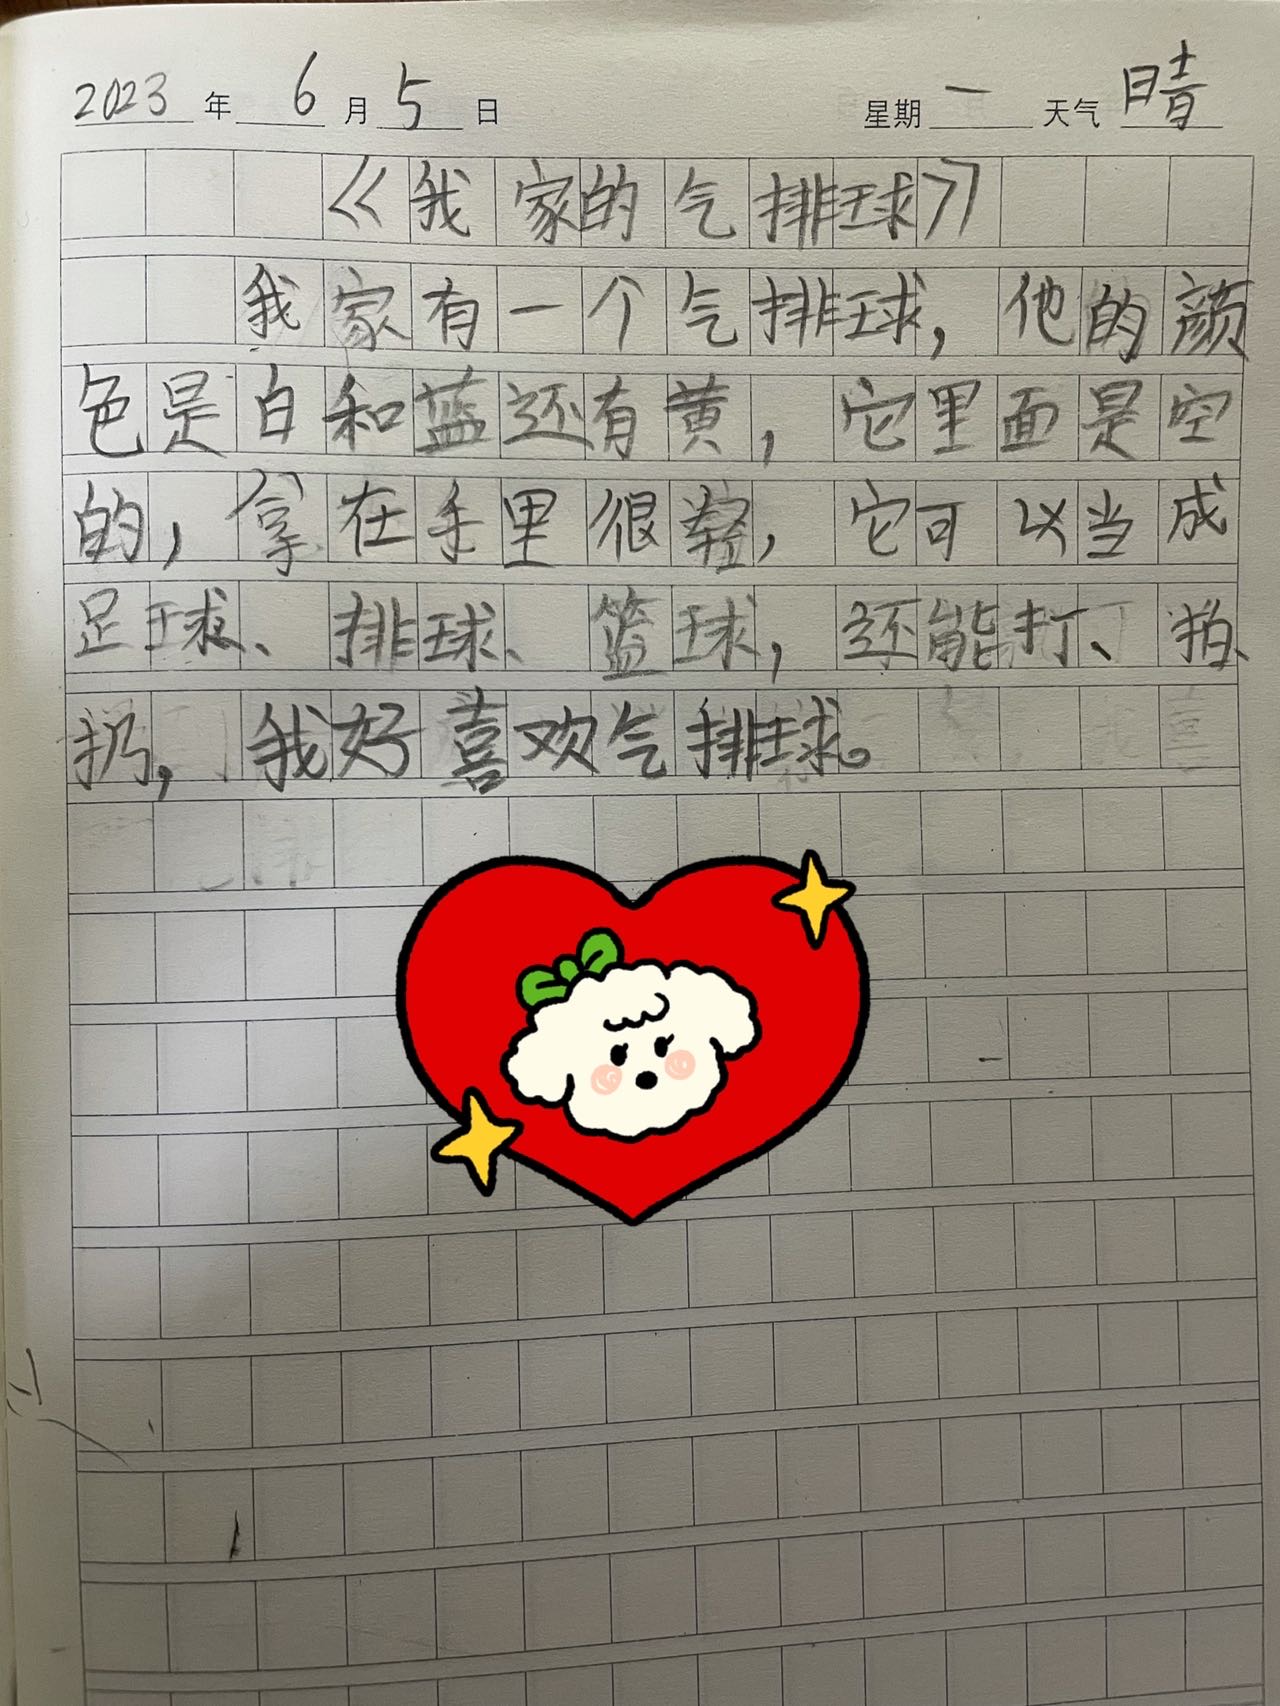 2023年6月5日 星期一 天气晴
《我家的气排球》
我家有一个气排球，他的颜
色是白和蓝还有黄，它里面是空
的，拿在手里很轻，它可以当成
足球、排球、篮球，还能打、拍、
扔，我好喜欢气排球。